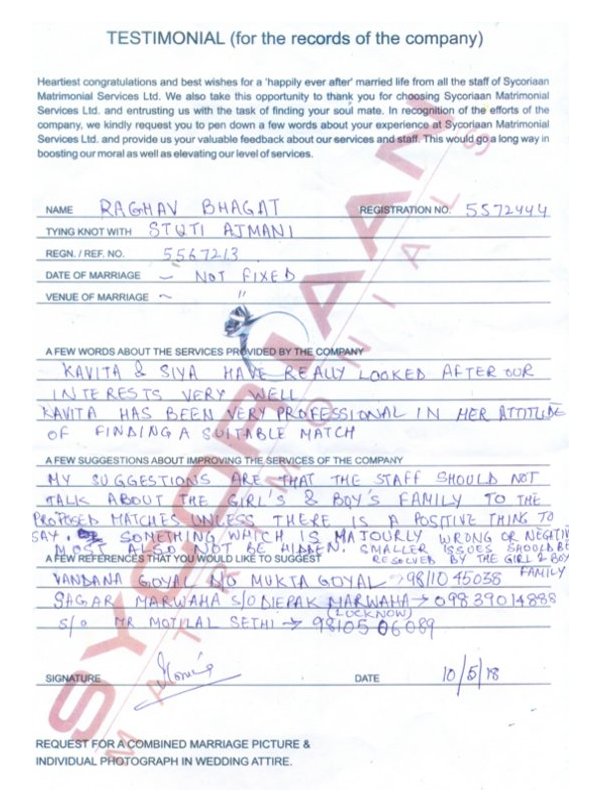 TESTIMONIAL (for the records of the company)
Heartiest congratulations and best wishes for a 'happily ever after' married life from all the staff of Sycoriaan
Matrimonial Services Ltd. We also take this opportunity to thank you for choosing Sycoriaan Matrimonial
Services Ltd. and entrusting us with the task of finding your soul mate. In recognition of the efforts of the
company, we kindly request you to pen down a few words about your experience at Sycoriaan Matrimonial
Services Ltd. and provide us your valuable feedback about our services and staff. This would go a long way in
boosting our moral as well as elevating our level of services.
NAME RAGHAV BHAGAT REGISTRATION NO. 5572444
TYING KNOT WITH STUTI AJMANI
REGN. / REF. NO. 5567213
DATE OF MARRIAGE ~ NOT FIXED
VENUE OF MARRIAGE ~ "
A FEW WORDS ABOUT THE SERVICES PROVIDED BY THE COMPANY
KAVITA & SIYA HAVE REALLY LOOKED AFTER OUR
INTERESTS VERY WELL
KAVITA HAS BEEN VERY PROFESSIONAL IN HER ATTITUDE
OF FINDING A SUITABLE MATCH
A FEW SUGGESTIONS ABOUT IMPROVING THE SERVICES OF THE COMPANY
MY SUGGESTIONS ARE THAT THE STAFF SHOULD NOT
TALK ABOUT THE GIRL'S & BOY'S FAMILY TO THE
PROPOSED MATCHES UNLESS THERE IS A POSITIVE THING TO
SAY. SOMETHING WHICH IS MAJOURLY WRONG OR NEGATIV
MOST ALSO NOT BE HIDDEN. SMALLER ISSUES SHOULD BE
RESOLVED BY THE GIRL & BOY
FAMILY
A FEW REFERENCES THAT YOU WOULD LIKE TO SUGGEST
VANDANA GOYAL D/O MUKTA GOYAL → 98110 45038
SAGAR MARWAHA S/O DIEPAK MARWAHA → 09839014888
(LUCKNOW)
S/O MR MOTILAL SETHI → 98105 06089
SIGNATURE DATE 10/5/18
REQUEST FOR A COMBINED MARRIAGE PICTURE &
INDIVIDUAL PHOTOGRAPH IN WEDDING ATTIRE.
SYCORIAAN
MATRIMONIALS